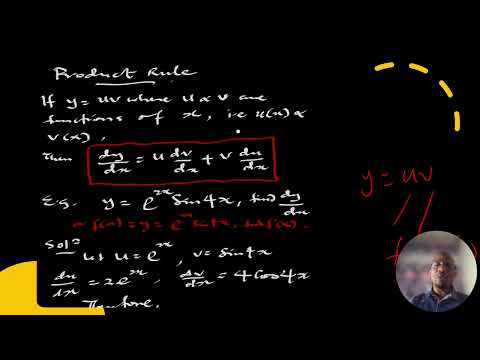 Product Rule
If y = uv where u & v are
functions of x, i.e u(x) &
v(x),
Then dy/dx = u dv/dx + v du/dx
E.g. y = e^2x Sin4x, find dy/dx
f(x) = y =
Sol^n
let u = e^2x, v = Sin4x
du/dx = 2e^2x, dv/dx = 4Cos4x
Therefore,
y = uv